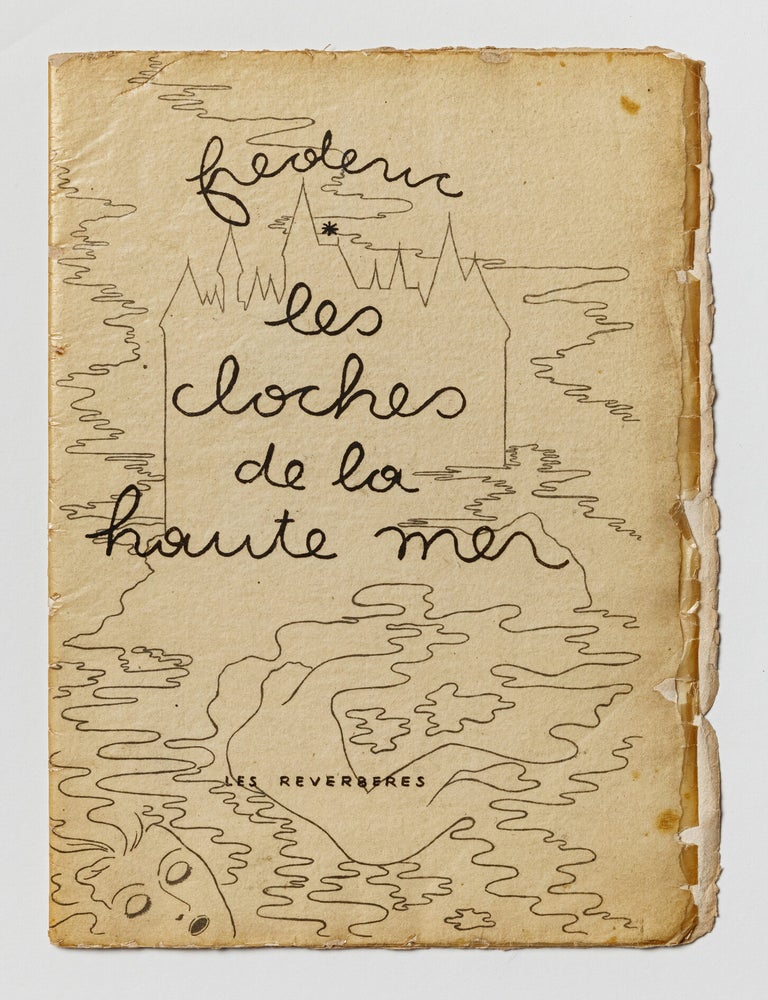 frederic
*
les
cloches
de la
haute mer
LES REVERBERES